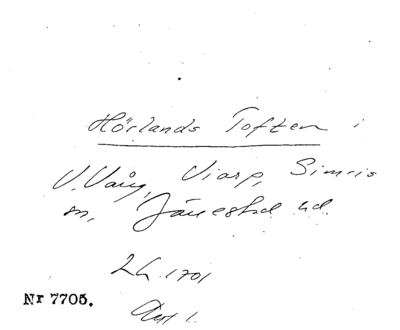 Hörlands Toften i
V. Vång, Viarp, Simris
sn, Järrestad hd.
Lh. 1701
Nr 7705.
Akt 1.